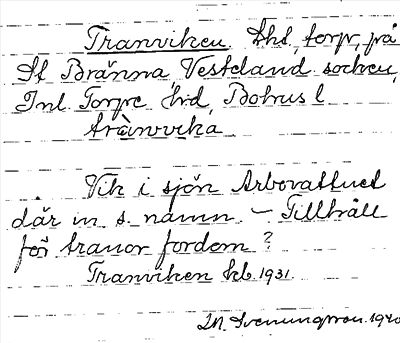 Tranviken. Lht, torp, på
St Bränna, Vesteland socken,
Inl Torpe hd, Bohus l
trànvika
Vik i sjön Arbovattnet
där in s. namn. – Tillhåll
för tranor fordom?
Tranviken kb 1931.
M. Svenungsson. 1940